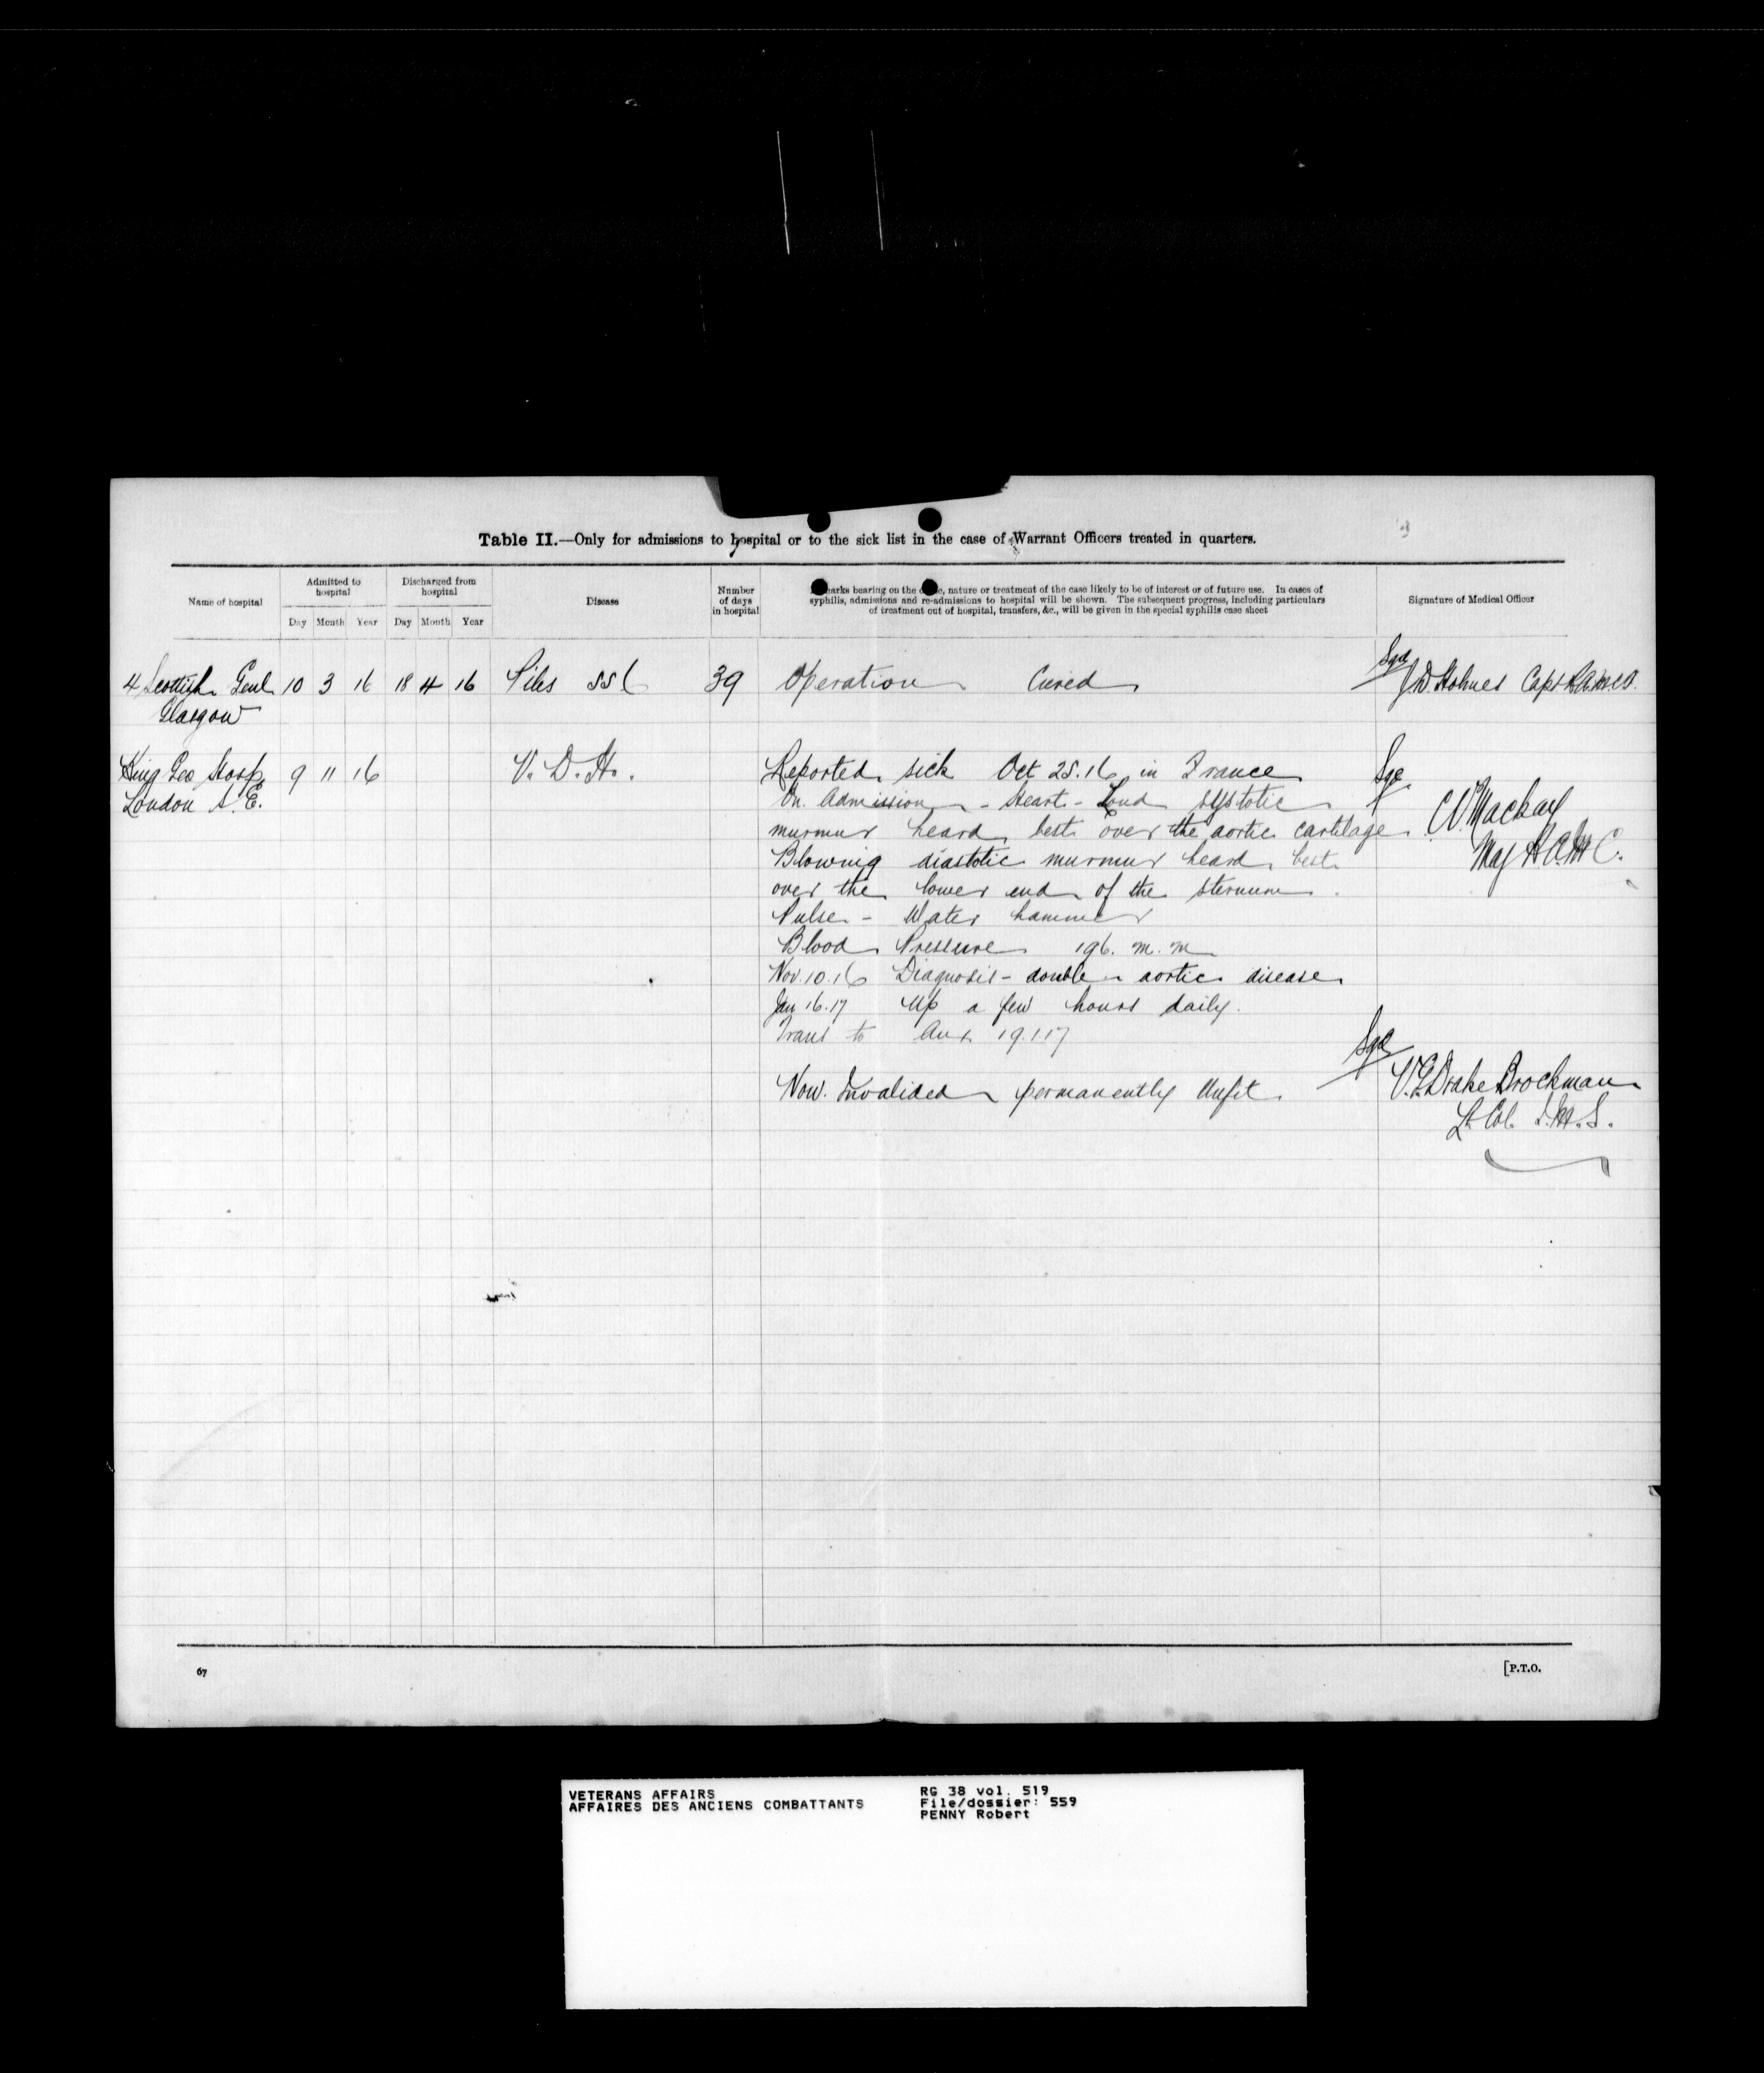 Table II.—Only for admissions to hospital or to the sick list in the case of Warrant Officers treated in quarters.
Name of hospital
Admitted to hospital
Discharged from hospital
Disease
Number of days in hospital
Remarks bearing on the cause, nature or treatment of the case likely to be of interest or of future use. In cases of
syphilis, admissions and re-admissions to hospital will be shown. The subsequent progress, including particulars
of treatment out of hospital, transfers, &c., will be given in the special syphilis case sheet
Signature of Medical Officer
Day Month Year Day Month Year
4 Scottish Genl 10 3 16 18 4 16 Piles 39 Operation Cured Sgd J.D. Holmes Capt R.A.M.C.
Glasgow
King Geo Hosp 9 11 16 V. D. H. Reported sick Oct 25.16 in France Sgd
London S.E. On Admission - Heart - Loud systolic
murmur heard best over the aortic cartilage. Mackay
Blowing diastolic murmur heard best Maj R.A.M.C.
over the lower end of the sternum.
Pulse - Water hammer
Blood Pressure 196. m. m
Nov. 10.16 Diagnosis - double aortic disease
Jan 16.17 Up a few hours daily.
Trans to Aux 19.1.17
Sgd
Now Invalided permanently Unfit. Drake Brockman
Lt Col. I.M.S.
67
[P.T.O.
VETERANS AFFAIRS
AFFAIRES DES ANCIENS COMBATTANTS
RG 38 vol. 519
File/dossier: 559
PENNY Robert